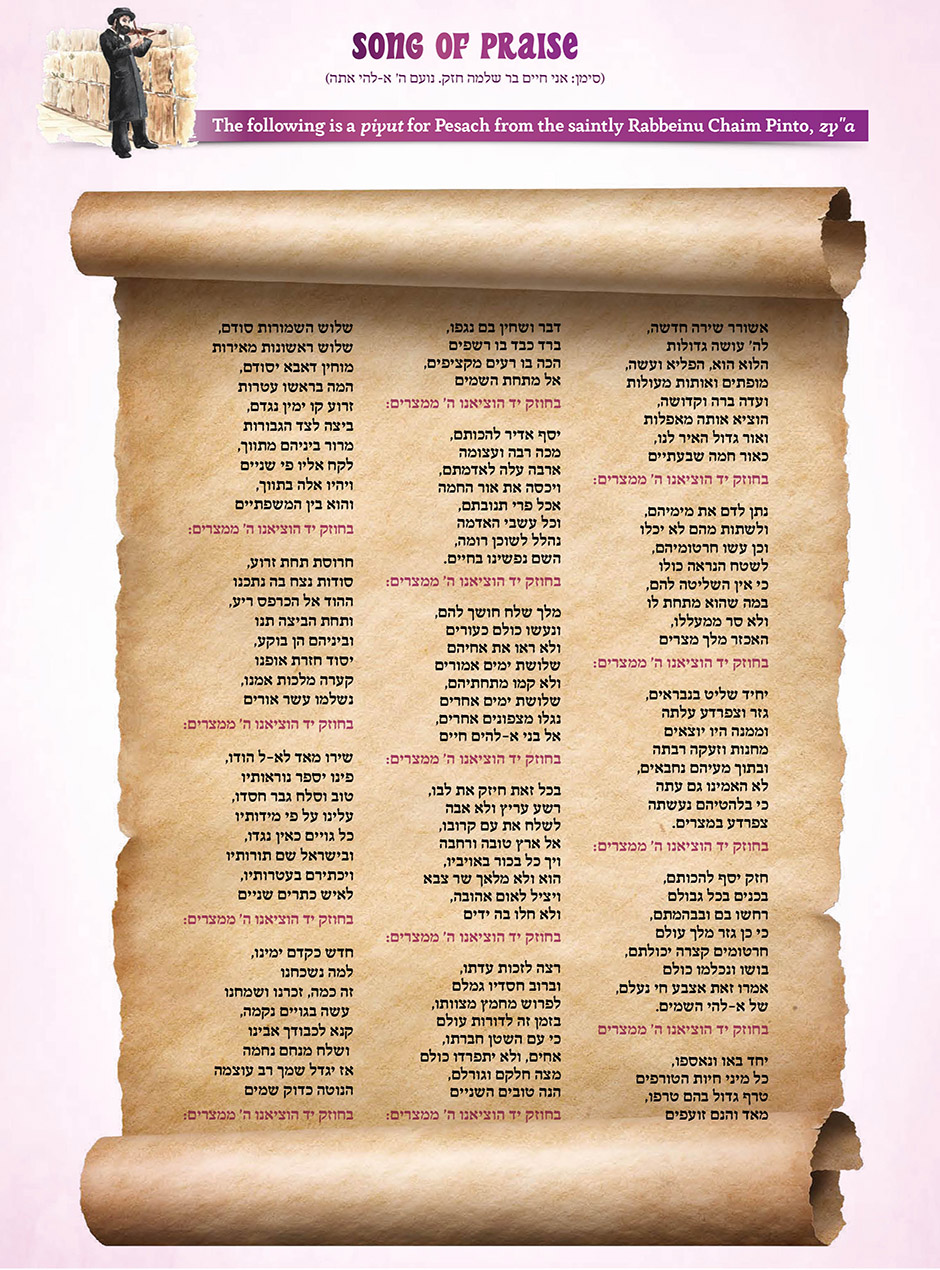 SONG OF PRAISE
(סימן: אני חיים בר שלמה חזק. נועם ה' א-להי אתה)
The following is a piyut for Pesach from the saintly Rabbeinu Chaim Pinto, zy"a
אשורר שירה חדשה,
לה' עושה גדולות
הלוא הוא, הפליא ועשה,
מופתים ואותות מעולות
ועדה ברה וקדושה,
הוציא אותה מאפלות
ואור גדול האיר לנו,
כאור חמה שבעתיים
בחוזק יד הוציאנו ה' ממצרים:
נתן לדם את מימיהם,
ולשתות מהם לא יכלו
וכן עשו חרטומיהם,
לשטח הנראה כולו
כי אין השליטה להם,
במה שהוא מתחת לו
ולא סר ממעללו,
האכזר מלך מצרים
בחוזק יד הוציאנו ה' ממצרים:
יחיד שליט בנבראים,
גזר וצפרדע עלתה
וממנה היו יוצאים
מחנות וזעקה רבתה
ובתוך מעיהם נחבאים,
לא האמינו גם עתה
כי בלהטיהם נעשתה
צפרדע במצרים.
בחוזק יד הוציאנו ה' ממצרים:
חזק יסף להכותם,
בכנים בכל גבולם
רחשו בם ובבהמתם,
כי כן גזר מלך עולם
חרטומים קצרה יכולתם,
בושו ונכלמו כולם
אמרו זאת אצבע חי נעלם,
של א-להי השמים.
בחוזק יד הוציאנו ה' ממצרים
יחד באו ונאספו,
כל מיני חיות הטורפים
טרף גדול בהם טרפו,
מאד והנם זועפים
דבר ושחין בם נגפו,
ברד כבד בו רשפים
הכה בו רעים מקציפים,
אל מתחת השמים
בחוזק יד הוציאנו ה' ממצרים:
יסף אדיר להכותם,
מכה רבה ועצומה
ארבה עלה לאדמתם,
ויכסה את אור החמה
אכל פרי תנובתם,
וכל עשבי האדמה
נהלל לשוכן רומה,
השם נפשינו בחיים.
בחוזק יד הוציאנו ה' ממצרים:
מלך שלח חושך להם,
ונעשו כולם כעורים
ולא ראו את אחיהם
שלושת ימים אמורים
ולא קמו מתחתיהם,
שלושת ימים אחרים
נגלו מצפונים אחרים,
אל בני א-להים חיים
בחוזק יד הוציאנו ה' ממצרים:
בכל זאת חיזק את לבו,
רשע עריץ ולא אבה
לשלח את עם קרובו,
אל ארץ טובה ורחבה
ויך כל בכור באויביו,
הוא ולא מלאך שר צבא
ויציל לאום אהובה,
ולא חלו בה ידים
בחוזק יד הוציאנו ה' ממצרים:
רצה לזכות עדתו,
וברוב חסדיו גמלם
לפרוש מחמץ מצוותו,
בזמן זה לדורות עולם
כי עם השטן חברתו,
אחים, ולא יתפרדו כולם
מצה חלקם וגורלם,
הנה טובים השניים
בחוזק יד הוציאנו ה' ממצרים:
שלוש השמורות סודם,
שלוש ראשונות מאירות
מוחין דאבא יסודם,
המה בראשו עטרות
זרוע קו ימין נגדם,
ביצה לצד הגבורות
מרור ביניהם מתווך,
לקח אליו פי שניים
ויהיו אלה בתווך,
והוא בין המשפתיים
בחוזק יד הוציאנו ה' ממצרים:
חרוסת תחת זרוע,
סודות נצח בה נתכנו
ההוד אל הכרפס ריע,
ותחת הביצה תנו
וביניהם הן בוקע,
יסוד חזרת אופנו
קערה מלכות אמנו,
נשלמו עשר אורים
בחוזק יד הוציאנו ה' ממצרים:
שירו מאד לא-ל הודו,
פינו יספר נוראותיו
טוב וסלח גבר חסדו,
עלינו על פי מידותיו
כל גויים כאין נגדו,
ובישראל שם תורותיו
ויכתירם בעטרותיו,
לאיש כתרים שניים
בחוזק יד הוציאנו ה' ממצרים:
חדש כקדם ימינו,
למה נשכחנו
זה כמה, זכרנו ושמחנו
עשה בגויים נקמה,
קנא לכבודך אבינו
ושלח מנחם נחמה
אז יגדל שמך רב עוצמה
הנוטה כדוק שמים
בחוזק יד הוציאנו ה' ממצרים: